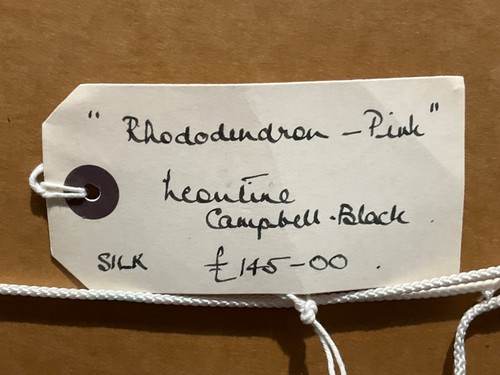 "Rhododendron – Pink"
Leontine
Campbell-Black.
SILK £145-00.